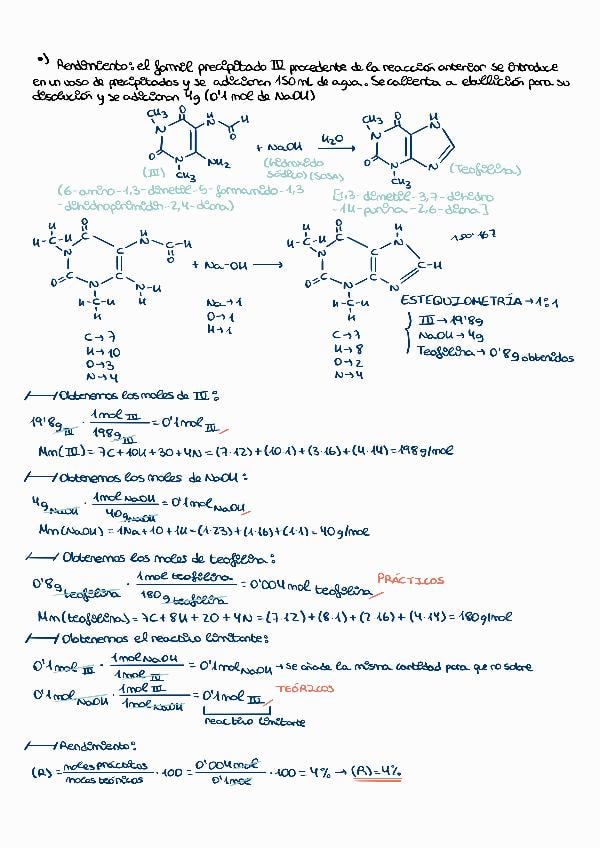 •) Rendimiento: el formil precipitado IV procedente de la reacción anterior se introduce
en un vaso de precipitados y se adicionen 150 mL de agua. Se calienta a ebullición para su
disolución y se adicionan 4g (0'1 mol de NaOH)
CH3 O H O
N N
O N NH2
CH3
+ NaOH
H2O
CH3 O H
N N
O N N
CH3
(III)
(hidróxido
sódico) (Sosa)
(Teofilina)
(6-amino-1,3-dimetil-5-formamido-1,3
-dihidropirimidin-2,4-diona)
[1,3-dimetil-3,7-dihidro
-1H-purina-2,6-diona]
H O H
H-C-H C N-C-H
N C O
O=C C
N N-H
H-C-H H
H
+ Na-OH
H O H
H-C-H C N
N C C-H
O=C C
N N
H-C-H
H
150-167
C→7
H→10
O→3
N→4
Na→1
O→1
H→1
C→7
H→8
O→2
N→4
ESTEQUIOMETRÍA→1:1
III→19'8g
NaOH→4g
Teofilina→0'8g obtenidos
Obtenemos los moles de III:
19'8g III · 1mol III / 198g III = 0'1mol III
Mm(III) = 7C+10H+3O+4N = (7·12)+(10·1)+(3·16)+(4·14) = 198g/mol
Obtenemos los moles de NaOH:
4g NaOH · 1mol NaOH / 40g NaOH = 0'1mol NaOH
Mm(NaOH) = 1Na+1O+1H = (1·23)+(1·16)+(1·1) = 40g/mol
Obtenemos los moles de teofilina:
0'8g teofilina · 1mol teofilina / 180g teofilina = 0'004 mol teofilina PRÁCTICOS
Mm(teofilina) = 7C+8H+2O+4N = (7·12)+(8·1)+(2·16)+(4·14) = 180g/mol
Obtenemos el reactivo limitante:
0'1mol III · 1mol NaOH / 1mol III = 0'1mol NaOH → se añade la misma cantidad para que no sobre
0'1mol NaOH · 1mol III / 1mol NaOH = 0'1mol III TEÓRICOS
reactivo limitante
Rendimiento:
(R) = moles prácticos / moles teóricos · 100 = 0'004mol / 0'1mol · 100 = 4% → (R)=4%